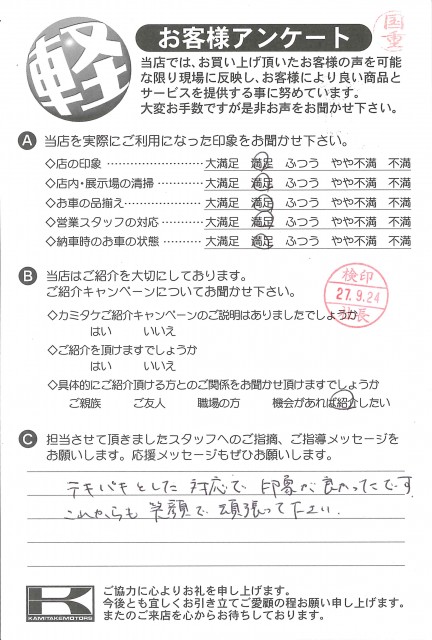 軽
お客様アンケート
国重
当店では、お買い上げ頂いたお客様の声を可能
な限り現場に反映し、お客様により良い商品と
サービスを提供する事に努めています。
大変お手数ですが是非お声をお聞かせ下さい。
A 当店を実際にご利用になった印象をお聞かせ下さい。
◇店の印象 大満足 満足 ふつう やや不満 不満
◇店内・展示場の清掃 大満足 満足 ふつう やや不満 不満
◇お車の品揃え 大満足 満足 ふつう やや不満 不満
◇営業スタッフの対応 大満足 満足 ふつう やや不満 不満
◇納車時のお車の状態 大満足 満足 ふつう やや不満 不満
B 当店はご紹介を大切にしております。
ご紹介キャンペーンについてお聞かせ下さい。
検印
27.9.24
社長
◇カミタケご紹介キャンペーンのご説明はありましたでしょうか
はい いいえ
◇ご紹介を頂けますでしょうか
はい いいえ
◇具体的にご紹介頂ける方とのご関係をお聞かせ頂けますでしょうか
ご親族 ご友人 職場の方 機会があれば紹介したい
C 担当させて頂きましたスタッフへのご指摘、ご指導メッセージを
お願いします。応援メッセージもぜひお願いします。
テキパキとした対応で印象が良かったです
これからも笑顔で頑張って下さい。
K
KAMITAKEMOTORS
ご協力に心よりお礼を申し上げます。
今後とも宜しくお引き立てご愛顧の程お願い申し上げます。
またのご来店を心からお待ちしております。